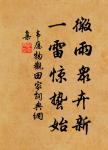 微雨众卉新
一雷惊蛰始
韦应物观田家词典网
集